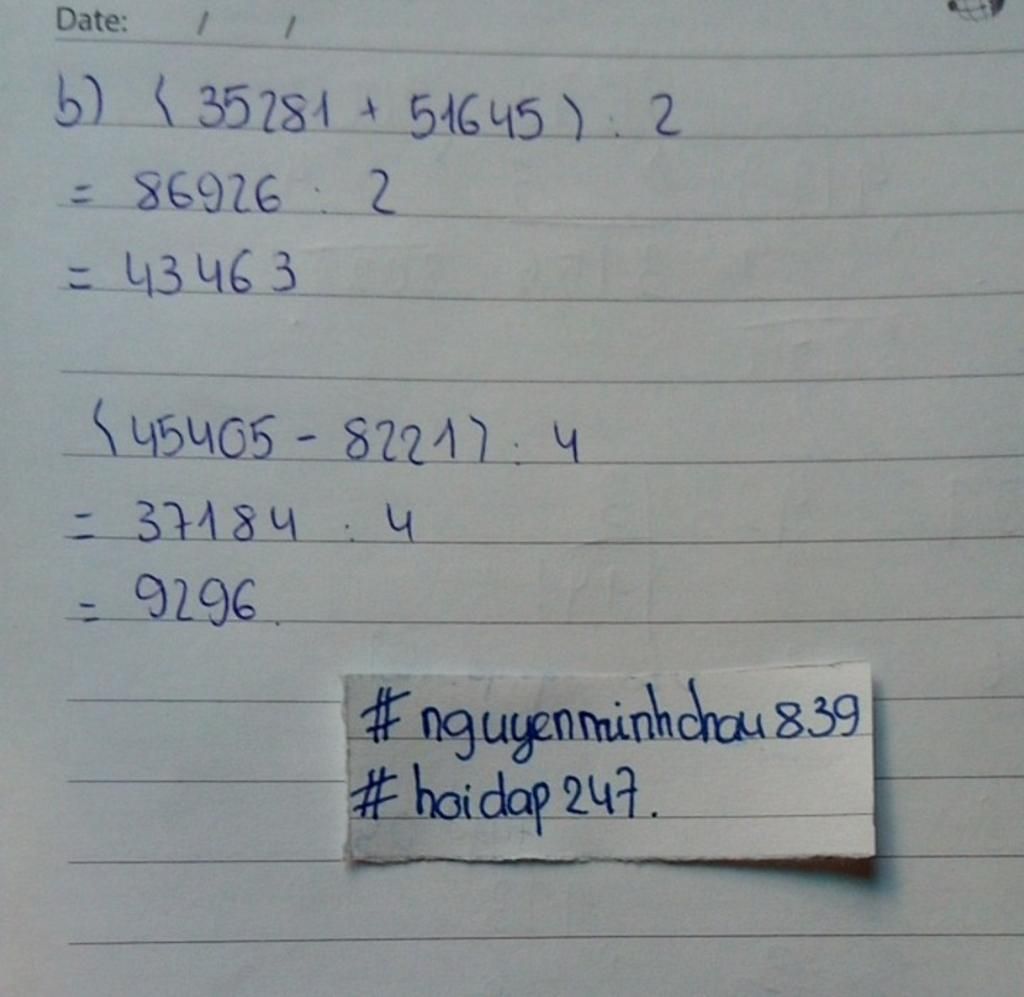 Date: / /
b) (35281 + 51645) : 2
= 86926 : 2
= 43463
(45405 - 8221) : 4
= 37184 : 4
= 9296.
# nguyenminhchau839
# hoidap247.